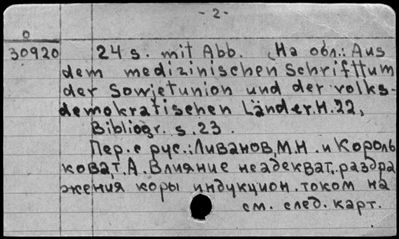 - 2 -
0
30920 24 s. mit Abb. (На обл.: Aus
dem medizinischen Schrifttum
der Sowjetunion und der volks-
demokratischen Länder. H. 22,
Bibliogr. s. 23.
Пер. с рус.: Ливанов, М.Н. и Король
кова, Т.А. Влияние неадекват. раздра
жения коры индукцион. током на
см. след. карт.